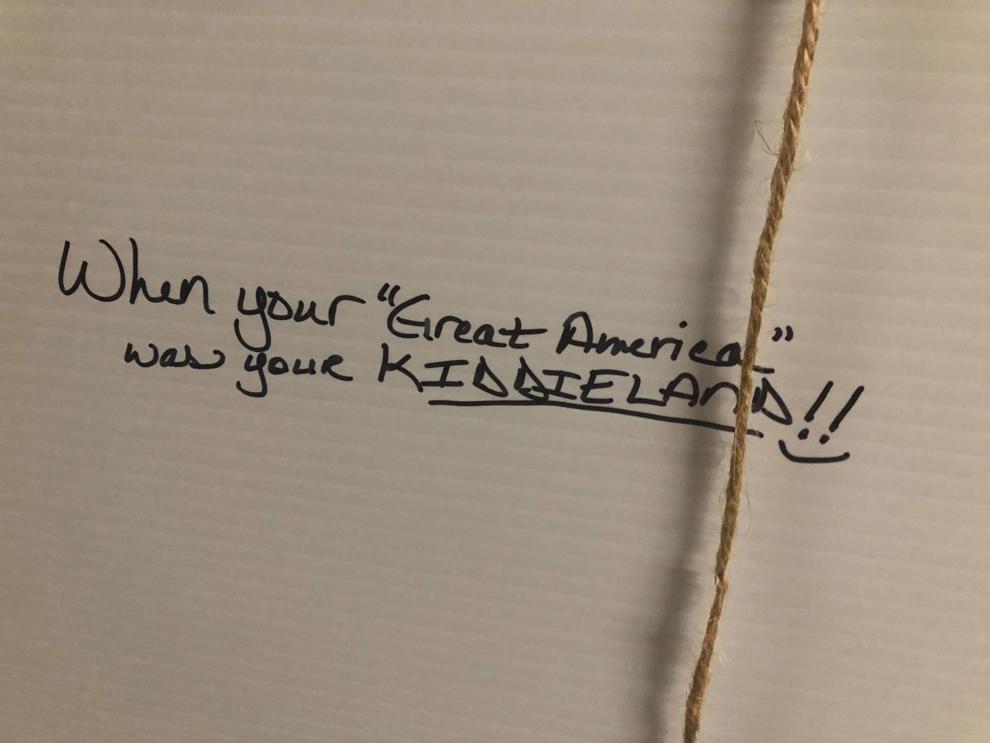 When your "Great America"
was your KIDDIELAND!!